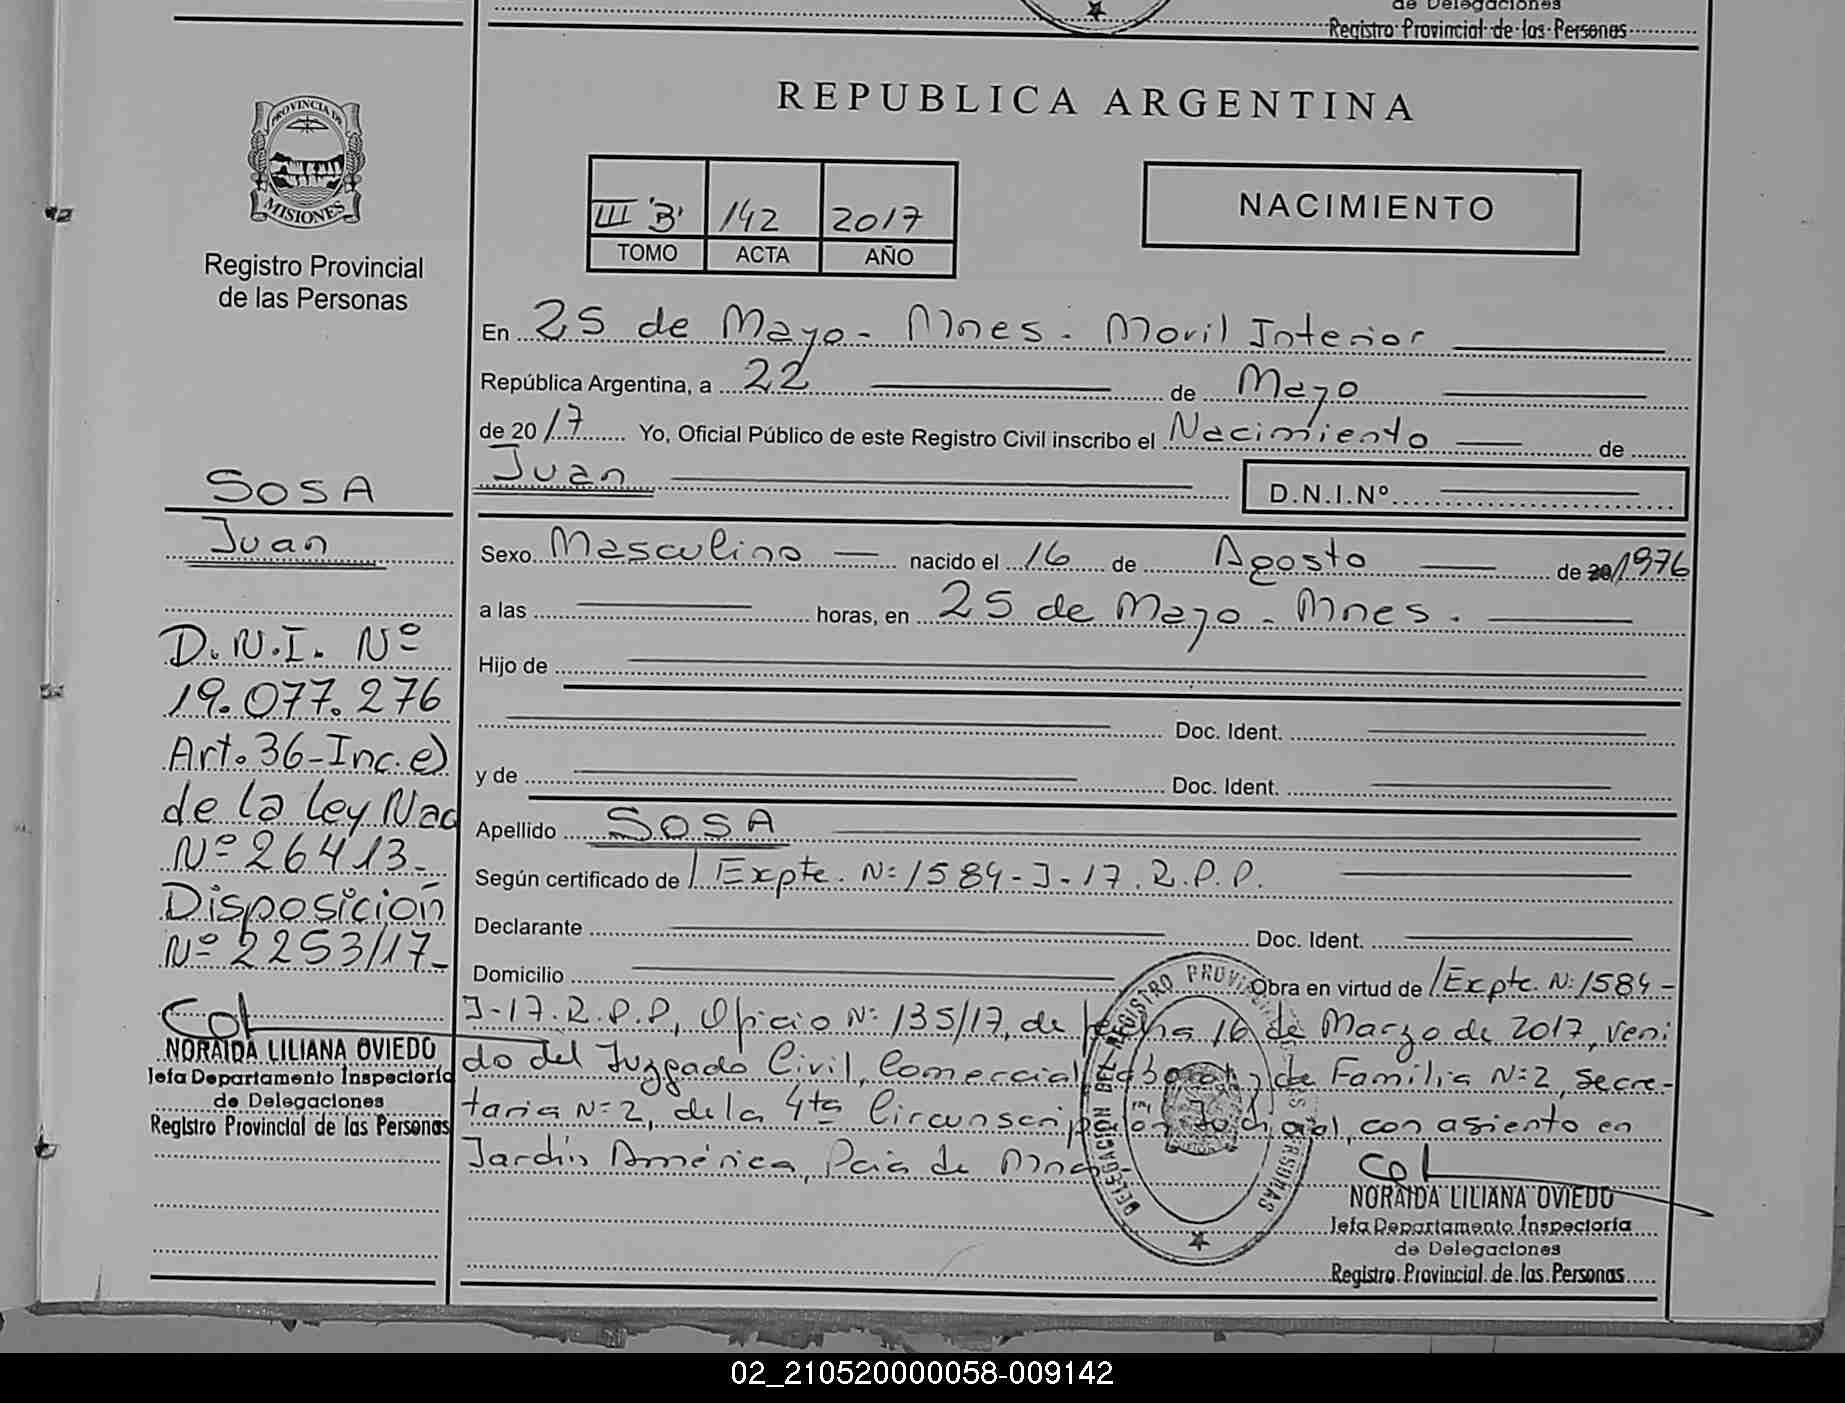 de Delegaciones
Registro Provincial de las Personas
PROVINCIA DE
MISIONES
Registro Provincial
de las Personas
SOSA
Juan
D.N.I. Nº
19.077.276
Art. 36-Inc. e)
de la ley Nac
Nº 26413-
Disposición
Nº 2253/17-
NORAIDA LILIANA OVIEDO
Jefa Departamento Inspectoría
de Delegaciones
Registro Provincial de las Personas
REPUBLICA ARGENTINA
III "B" 142 2017
TOMO ACTA AÑO
NACIMIENTO
En 25 de Mayo - Mnes - Movil Interior
República Argentina, a 22 de Mayo
de 2017 Yo, Oficial Público de este Registro Civil inscribo el Nacimiento de
Juan D.N.I.Nº
Sexo Masculino nacido el 16 de Agosto de 20/1976
a las horas, en 25 de Mayo - Mnes.
Hijo de
Doc. Ident.
y de Doc. Ident.
Apellido SOSA
Según certificado de / Expte. N: 1584-J-17.R.P.P.
Declarante Doc. Ident.
Domicilio Obra en virtud de / Expte. N: 1584-
J-17.R.P.P, Oficio N: 135/17, de fecha 16 de Marzo de 2017, veni
do del Juzgado Civil, Comercial, Laboral y de Familia N:2, Secre-
taria N:2, de la 4ta Circunscripción Judicial, con asiento en
Jardín América, Pcia de Mnes
DELEGACION DEL REGISTRO PROVINCIAL DE LAS PERSONAS
NORAIDA LILIANA OVIEDO
Jefa Departamento Inspectoría
de Delegaciones
Registro Provincial de las Personas
02_210520000058-009142